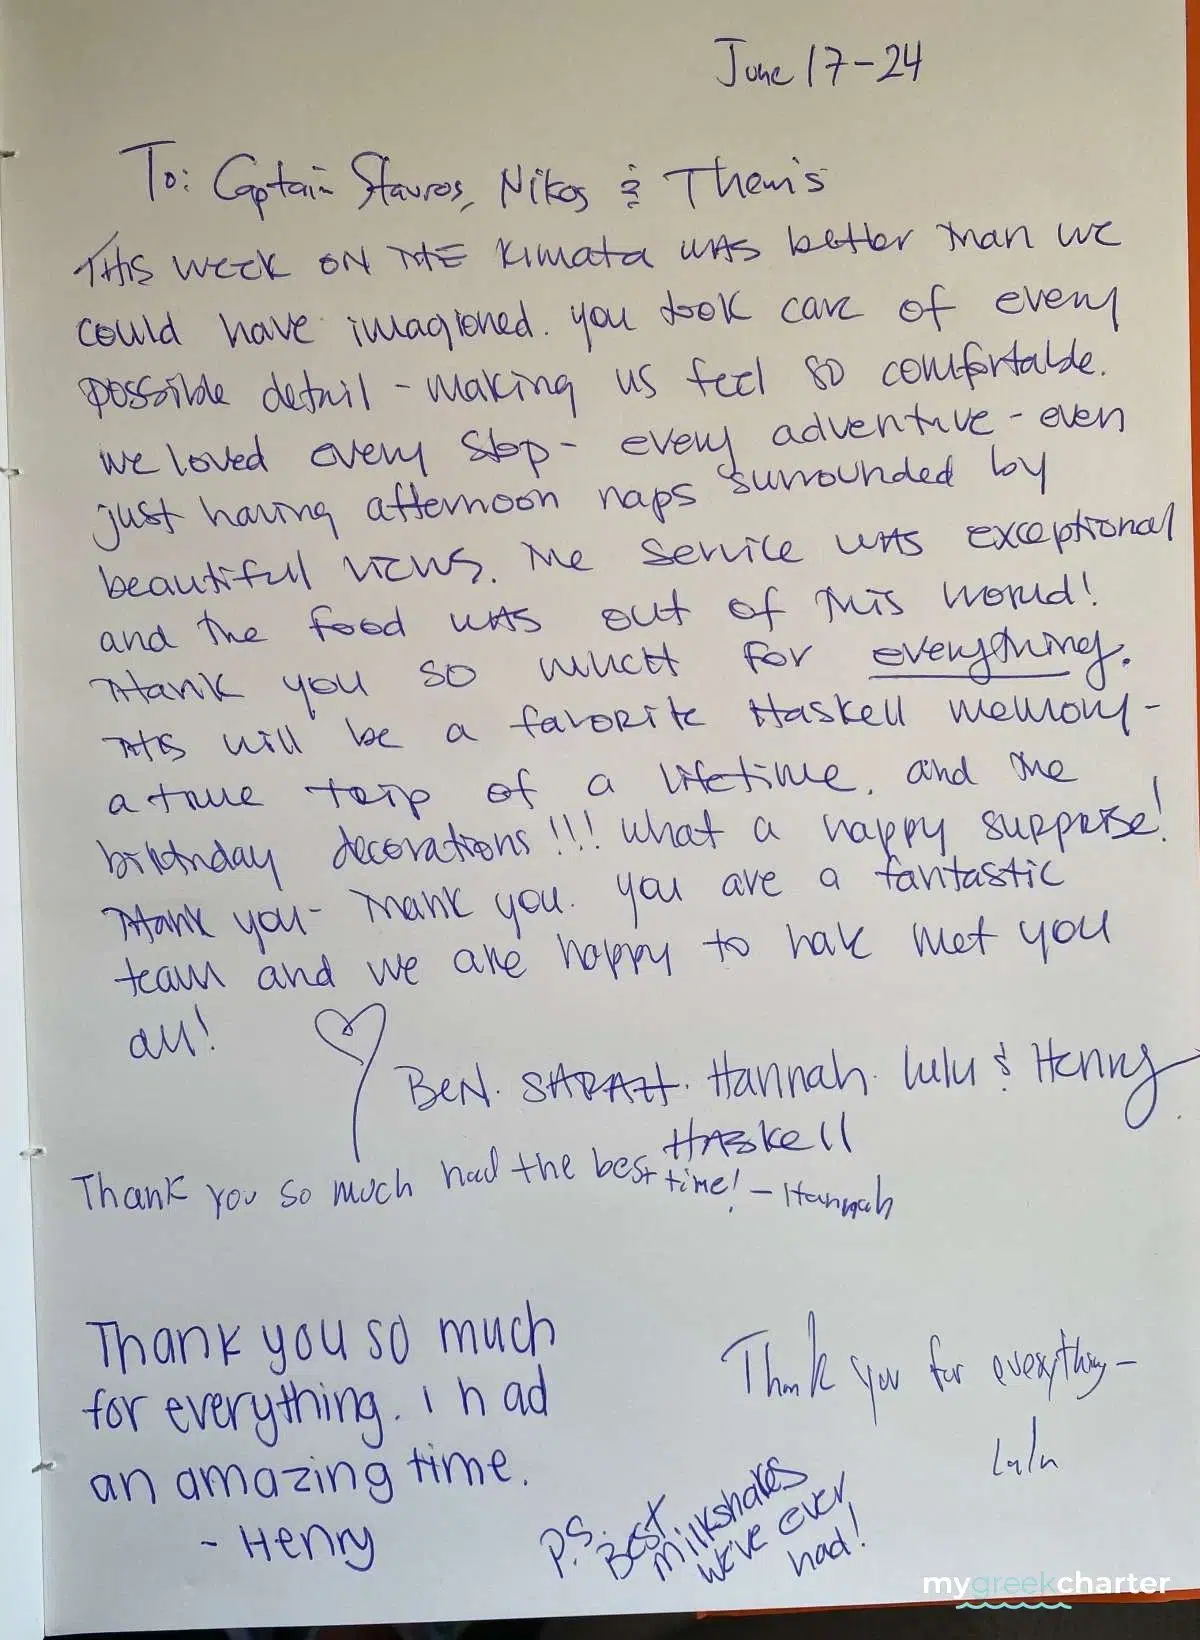 June 17-24
To: Captain Stavros, Nikos & Themis
THIS WEEK ON THE Kimata WAS better than we
could have imagioned. you took care of every
possible detail - making us feel so comfortable.
we loved every stop - every adventure - even
just having afternoon naps surrounded by
beautiful views. The service WAS exceptional
and the food WAS out of this world!
Thank you so much for everything.
This will be a favorite Haskell memory -
a true trip of a lifetime. and the
birthday decorations!!! what a happy surprise!
Thank you - Thank you. you are a fantastic
team and we are happy to have met you
all!
BEN. SARAH. Hannah. Lulu & Henry
HASkell
Thank you so much had the best time! - Hannah
Thank you so much
for everything. I had
an amazing time.
- Henry
Thank you for everything -
Lulu
P.S.
Best
milkshakes
we've ever
had!
mygreekcharter